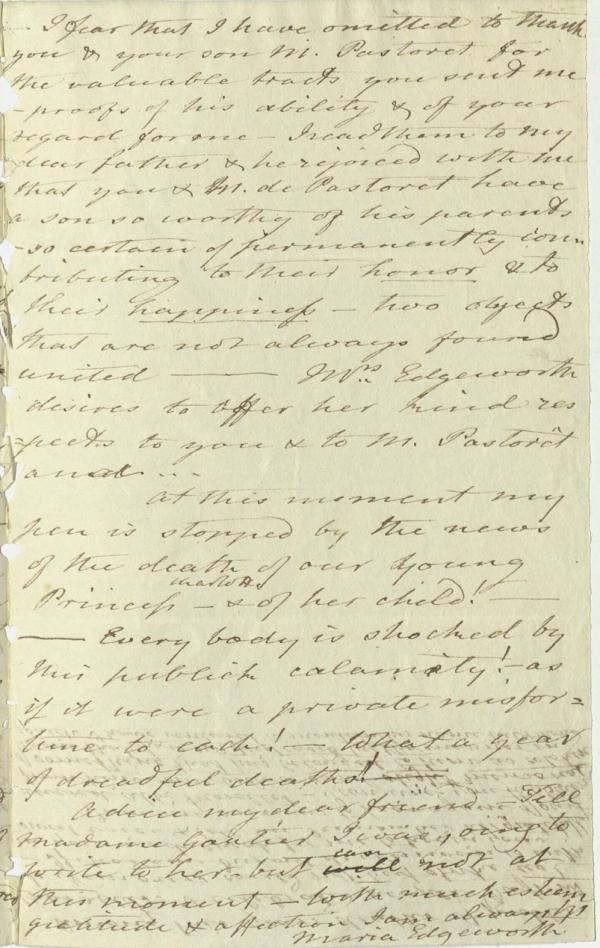 I fear that I have omitted to thank
you & your son M. Pastoret for
the valuable tracts you sent me
- proofs of his ability & of your
regard for me - I read them to my
dear father & he rejoiced with me
that you & M. de Pastoret have
a son so worthy of his parents
- so certain of permanently con-
tributing to their honor & to
their happiness - two objects
that are not always found
united — Mrs. Edgeworth
desires to offer her kind res
-pects to you & to M. Pastoret
and ...
At this moment my
pen is stopped by the news
of the death of our young
Princess Charlotte - & of her child! —
— Every body is shocked by
this publick calamity! - as
if it were a private misfor=
tune to each! — What a year
of dreadful deaths!
Adieu my dear friend - Tell
madame Gautier I was going to
write to her - but can not at
this moment - With much esteem
gratitude & affection I am always yrs
Maria Edgeworth